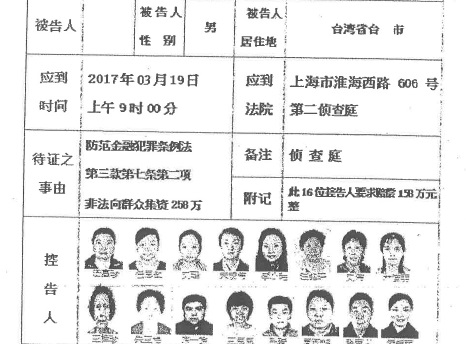 被告人
被告人
性 别
男
被告人
居住地
台湾省台 市
应到
时间
2017年03月19日
上午9时00分
应到
法院
上海市淮海西路 606 号
第二侦查庭
待证之
事由
防范金融犯罪条例法
第三款第七条第二项
非法向群众集资258万
备注
侦查庭
附记
此16位控告人要求赔偿158万元
整
控
告
人